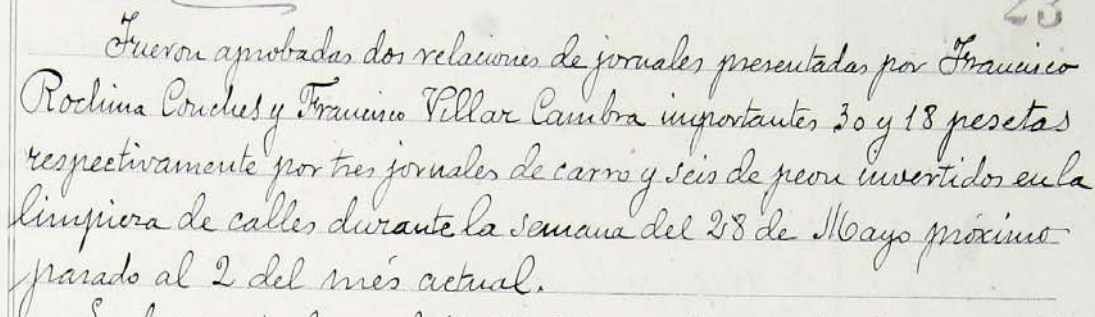 23
Fueron aprobadas dos relaciones de jornales presentadas por Francisco
Rochina Conches y Francisco Villar Cambra importantes 30 y 18 pesetas
respectivamente por tres jornales de carro y seis de peon invertidos en la
limpieza de calles durante la semana del 28 de Mayo próximo
pasado al 2 del més actual.